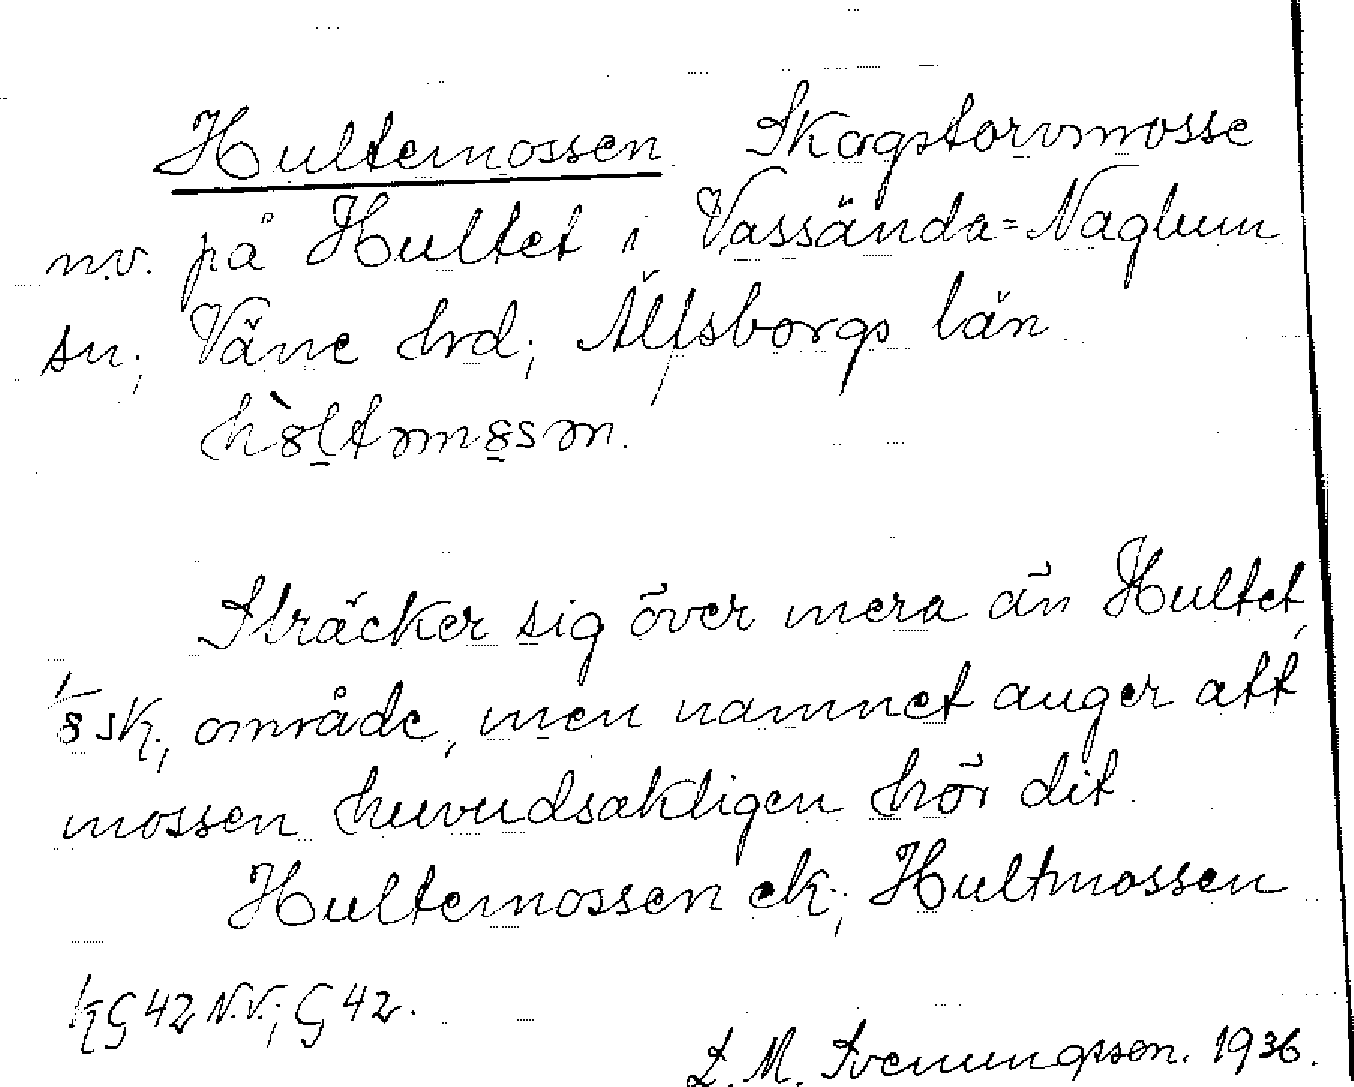 Hultemossen Skogstorvmosse
n.v. på Hultet i Vassända=Naglum
sn; Väne hrd; Älfsborgs län
Sträcker sig över mera än Hultet,
1/8 sk, område, men namnet anger att
mossen huvudsakligen hör dit.
Hultemossen ek; Hultmossen
kG 42 N.V.; G 42.
L. M. Svenungsson. 1936.